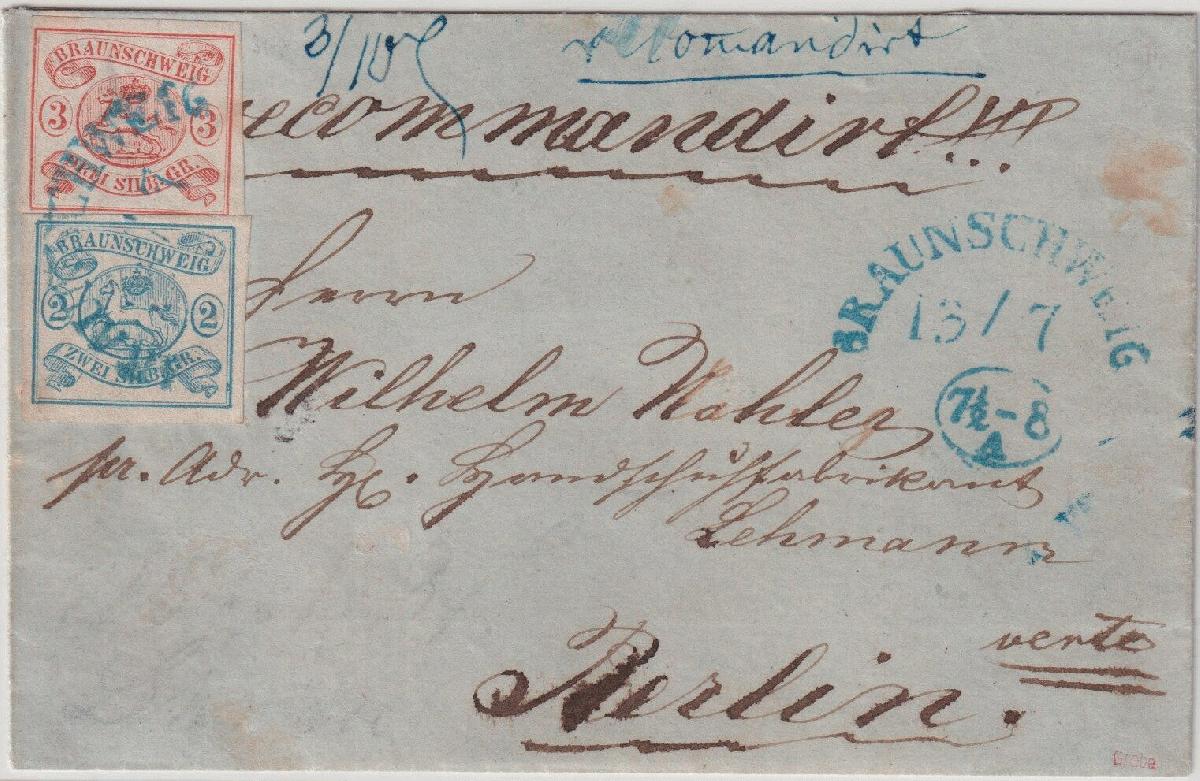 3/118
recomandirt
BRAUNSCHWEIG
3 3
DREI SILB.GR.
recommandirt!!!
BRAUNSCHWEIG
13/7
7½-8
A
BRAUNSCHWEIG
2 2
ZWEI SILB.GR.
Herrn
Wilhelm Nahler
pr. Adr. H. Handschuhfabrikant
Lehmann
verte
Berlin.